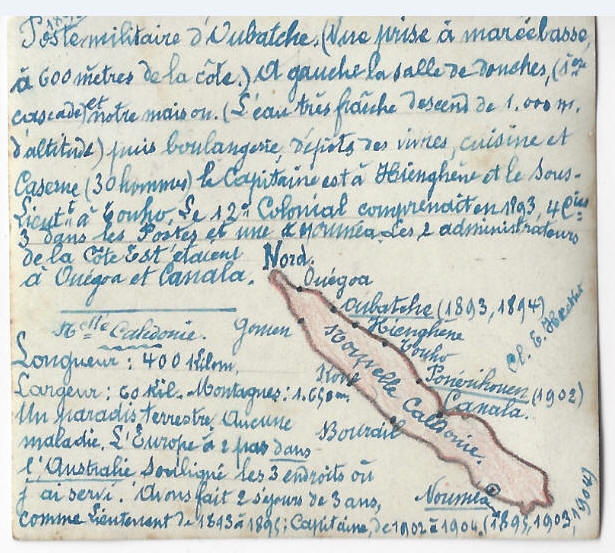 Poste militaire d'Oubatche. (Vue prise à marée basse,
à 600 mètres de la côte.) A gauche la salle de douches, (1ère
cascade) et notre maison. (L'eau très fraîche descend de 1.000 m.
d'altitude) puis boulangerie, dépôts des vivres, cuisine et
Caserne (30 hommes) le Capitaine est à Hienghène et le Sous-
Lieutt à Touho. Le 12e Colonial comprenait en 1893, 4 Cies
3 dans les Postes et une à Nouméa. Les 2 administrateurs
de la Côte Est étaient
à Ouégoa et Canala.
Nord.
Ouégoa
Oubatche (1893, 1894)
Hienghène
Touho
Ponérihouen (1902)
Canala.
Gomen
Koné
Bourail
Nouvelle Calédonie.
Nouméa
(1895, 1903, 1904)
Cl. E.
Nelle Calédonie.
Longueur : 400 Kilom,
Largeur : 60 Kil. Montagnes : 1.650 m.
Un paradis terrestre, Aucune
maladie. L'Europe à 2 pas dans
l'Australie Souligné les 3 endroits où
j'ai servi. Avons fait 2 séjours de 3 ans,
comme Lieutenant de 1893 à 1895; Capitaine, de 1902 à 1904.